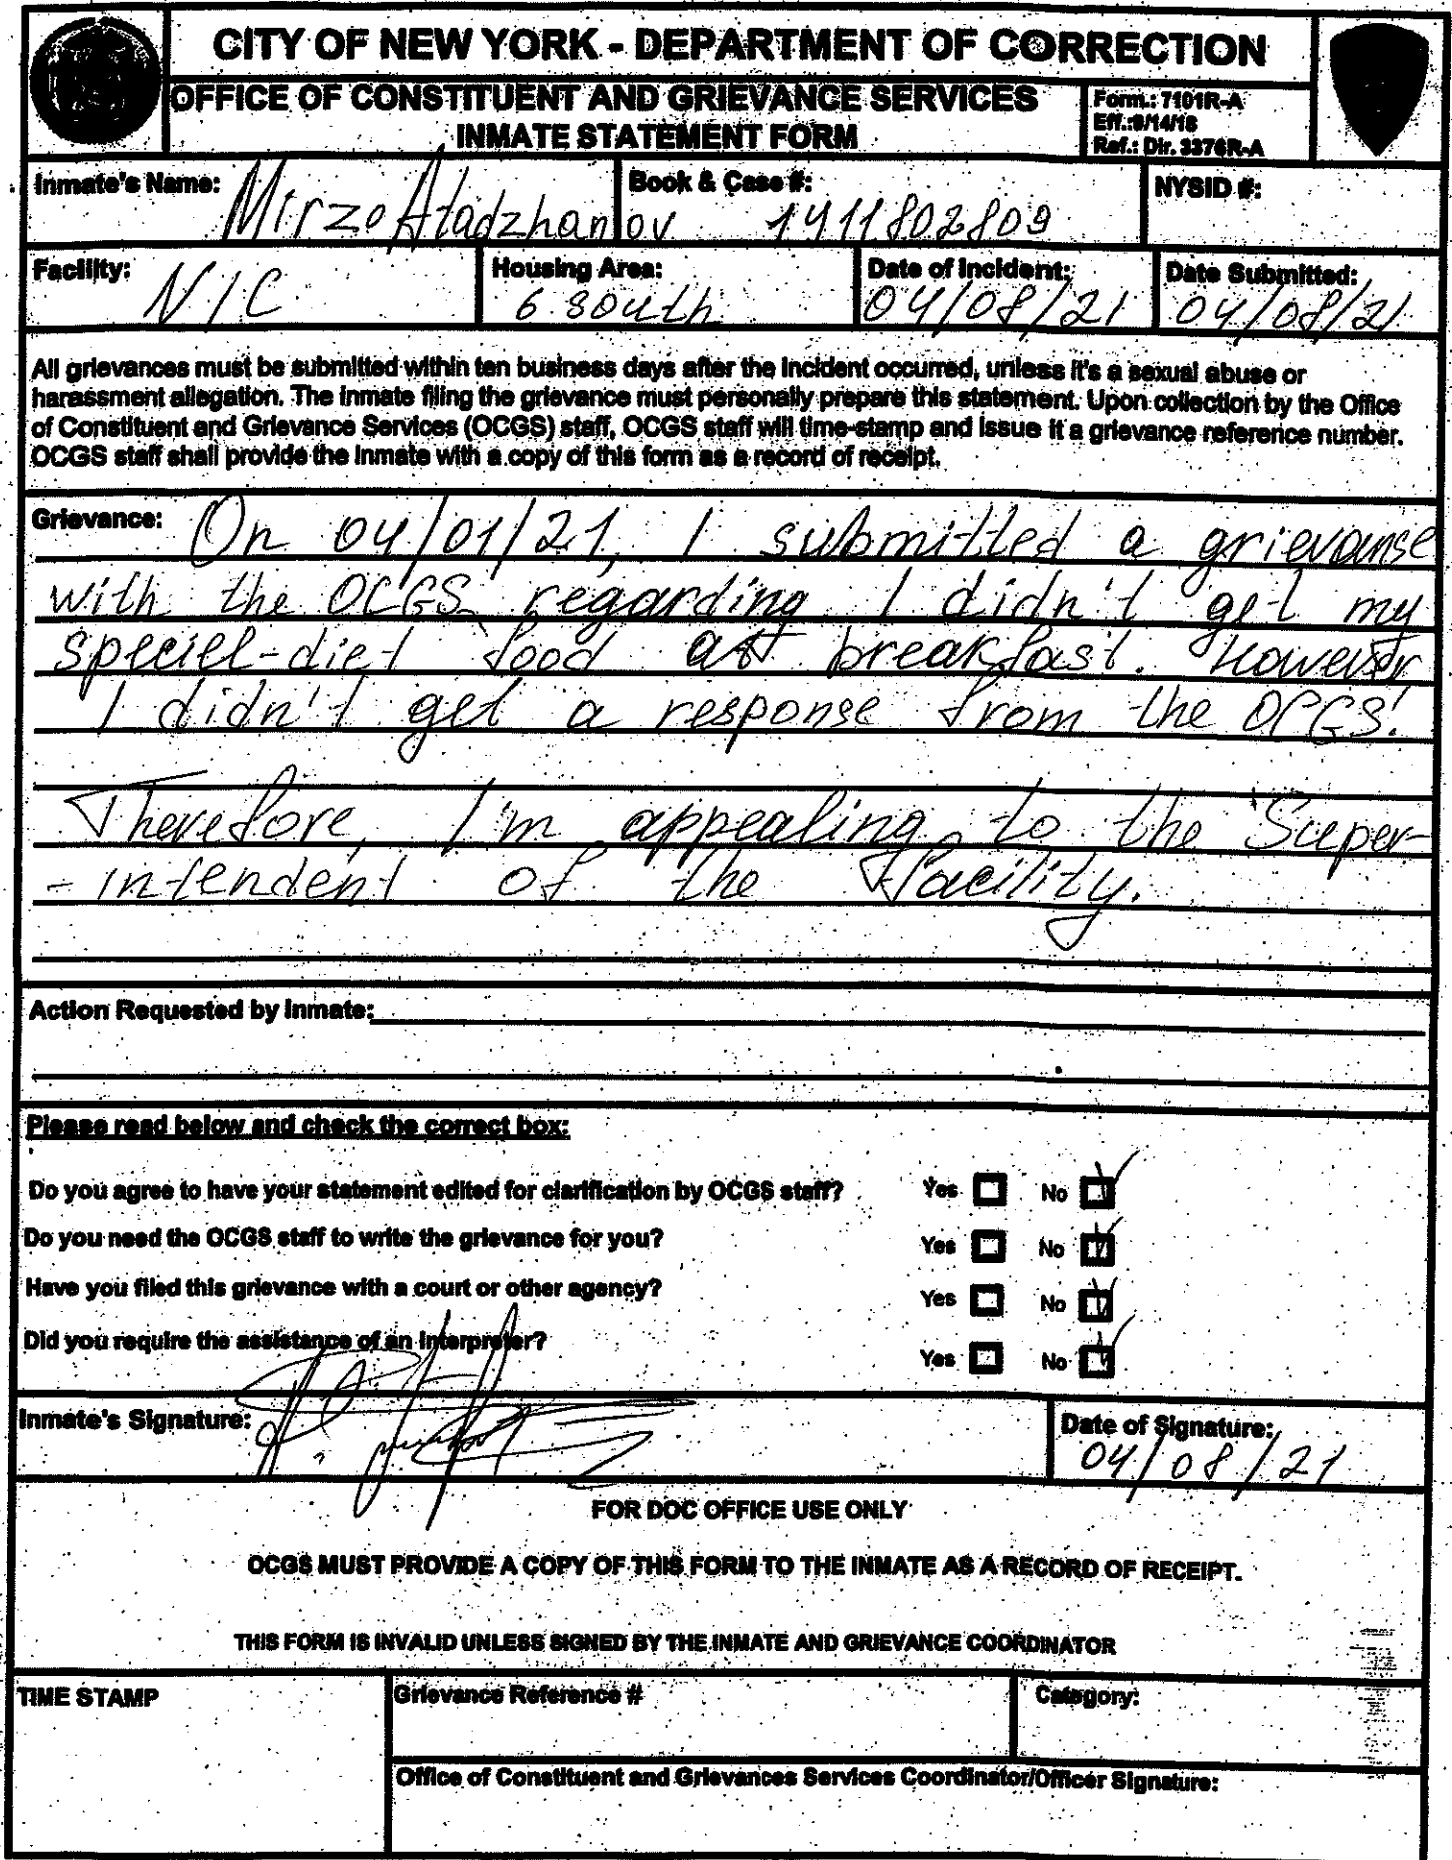 CITY OF NEW YORK - DEPARTMENT OF CORRECTION
OFFICE OF CONSTITUENT AND GRIEVANCE SERVICES
INMATE STATEMENT FORM
Form.: 7101R-A
Eff.:9/14/18
Ref.: Dir. 3376R-A
Inmate's Name: Mirzo Atadzhanov
Book & Case #: 1411802809
NYSID #:
Facility: NIC
Housing Area: 6 south
Date of Incident: 04/08/21
Date Submitted: 04/08/21
All grievances must be submitted within ten business days after the incident occurred, unless it's a sexual abuse or
harassment allegation. The inmate filing the grievance must personally prepare this statement. Upon collection by the Office
of Constituent and Grievance Services (OCGS) staff, OCGS staff will time-stamp and issue it a grievance reference number.
OCGS staff shall provide the inmate with a copy of this form as a record of receipt.
Grievance: On 04/01/21, I submitted a grievanse
with the OCGS regarding I didn't get my
speciel-diet food at breakfast. However
I didn't get a response from the OCGS.
Therefore, I'm appealing to the Super-
-intendent of the Facility.
Action Requested by Inmate:
Please read below and check the correct box:
Do you agree to have your statement edited for clarification by OCGS staff? Yes No
Do you need the OCGS staff to write the grievance for you? Yes No
Have you filed this grievance with a court or other agency? Yes No
Did you require the assistance of an interpreter? Yes No
Inmate's Signature:
Date of Signature: 04/08/21
FOR DOC OFFICE USE ONLY
OCGS MUST PROVIDE A COPY OF THIS FORM TO THE INMATE AS A RECORD OF RECEIPT.
THIS FORM IS INVALID UNLESS SIGNED BY THE INMATE AND GRIEVANCE COORDINATOR
TIME STAMP
Grievance Reference #
Category:
Office of Constituent and Grievances Services Coordinator/Officer Signature: